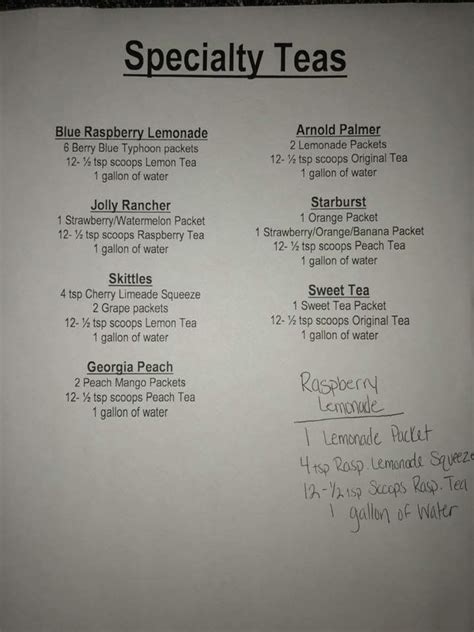 Specialty Teas
Blue Raspberry Lemonade
6 Berry Blue Typhoon packets
12- ½ tsp scoops Lemon Tea
1 gallon of water
Jolly Rancher
1 Strawberry/Watermelon Packet
12- ½ tsp scoops Raspberry Tea
1 gallon of water
Skittles
4 tsp Cherry Limeade Squeeze
2 Grape packets
12- ½ tsp scoops Lemon Tea
1 gallon of water
Georgia Peach
2 Peach Mango Packets
12- ½ tsp scoops Peach Tea
1 gallon of water
Arnold Palmer
2 Lemonade Packets
12- ½ tsp scoops Original Tea
1 gallon of water
Starburst
1 Orange Packet
1 Strawberry/Orange/Banana Packet
12- ½ tsp scoops Peach Tea
1 gallon of water
Sweet Tea
1 Sweet Tea Packet
12- ½ tsp scoops Original Tea
1 gallon of water
Raspberry
Lemonade
1 Lemonade Packet
4 tsp Rasp. Lemonade Squeeze
12-½ tsp Scoops Rasp. Tea
1 gallon of Water